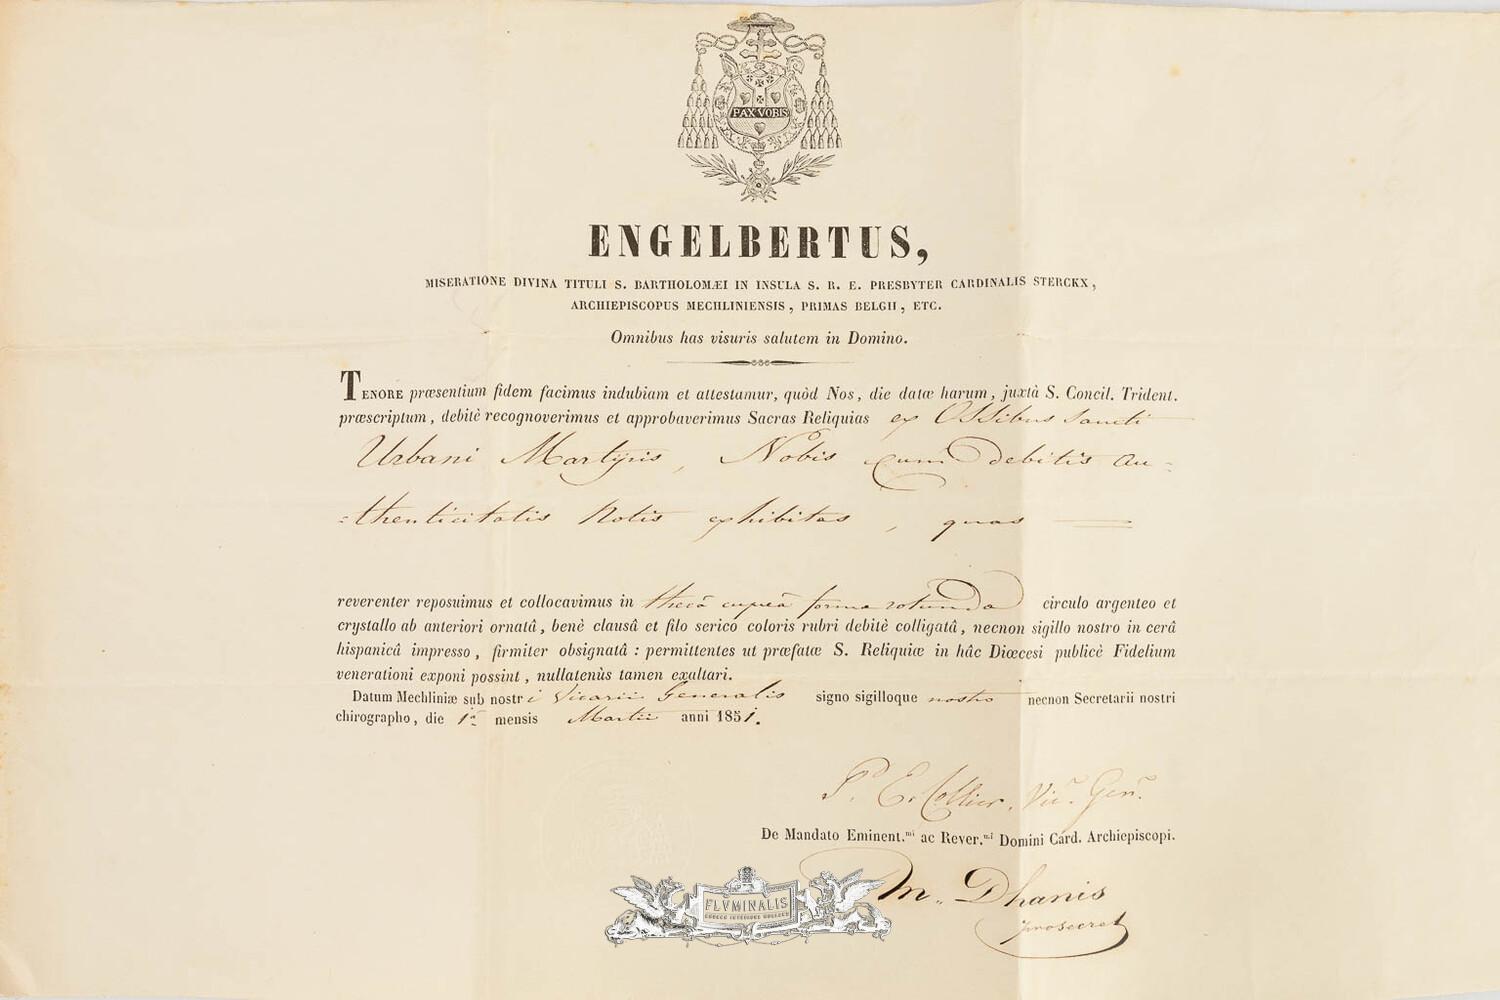 PAX VOBIS
ENGELBERTUS,
MISERATIONE DIVINA TITULI S. BARTHOLOMÆI IN INSULA S. R. E. PRESBYTER CARDINALIS STERCKX,
ARCHIEPISCOPUS MECHLINIENSIS, PRIMAS BELGII, ETC.
Omnibus has visuris salutem in Domino.
TENORE præsentium fidem facimus indubiam et attestamur, quòd Nos, die datæ harum, juxtà S. Concil. Trident.
præscriptum, debitè recognoverimus et approbaverimus Sacras Reliquias ex Ossibus Sancti
Urbani Martyris, Nobis cum debitis au=
=thenticitatis Notis exhibitas, quas
reverenter reposuimus et collocavimus in thecâ cupreâ forma rotunda circulo argenteo et
crystallo ab anteriori ornatâ, benè clausâ et filo serico coloris rubri debitè colligatâ, necnon sigillo nostro in cerâ
hispanicâ impresso, firmiter obsignatâ : permittentes ut præfatæ S. Reliquiæ in hâc Diœcesi publicè Fidelium
venerationi exponi possint, nullatenùs tamen exaltari.
Datum Mechliniæ sub nostri Vicarii Generalis signo sigilloque nostro necnon Secretarii nostri
chirographo, die 1â mensis Martii anni 1851.
P. E. Collier, Vic. Gen.
De Mandato Eminent.mi ac Rever.mi Domini Card. Archiepiscopi.
M. Dhanis
prosecret
FLVMINALIS